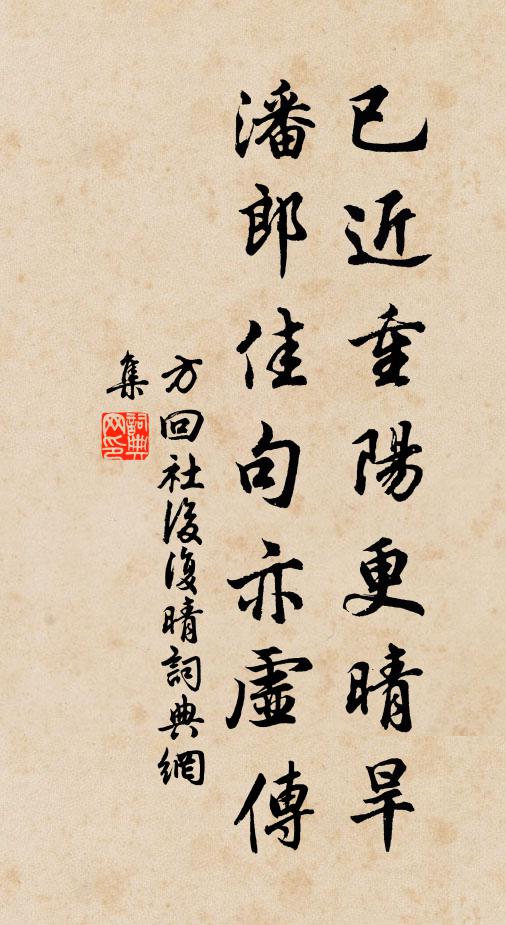 已近重陽更晴旱
潘郎佳句亦虛傳
方回社後復晴詞典網
集
詞典網印